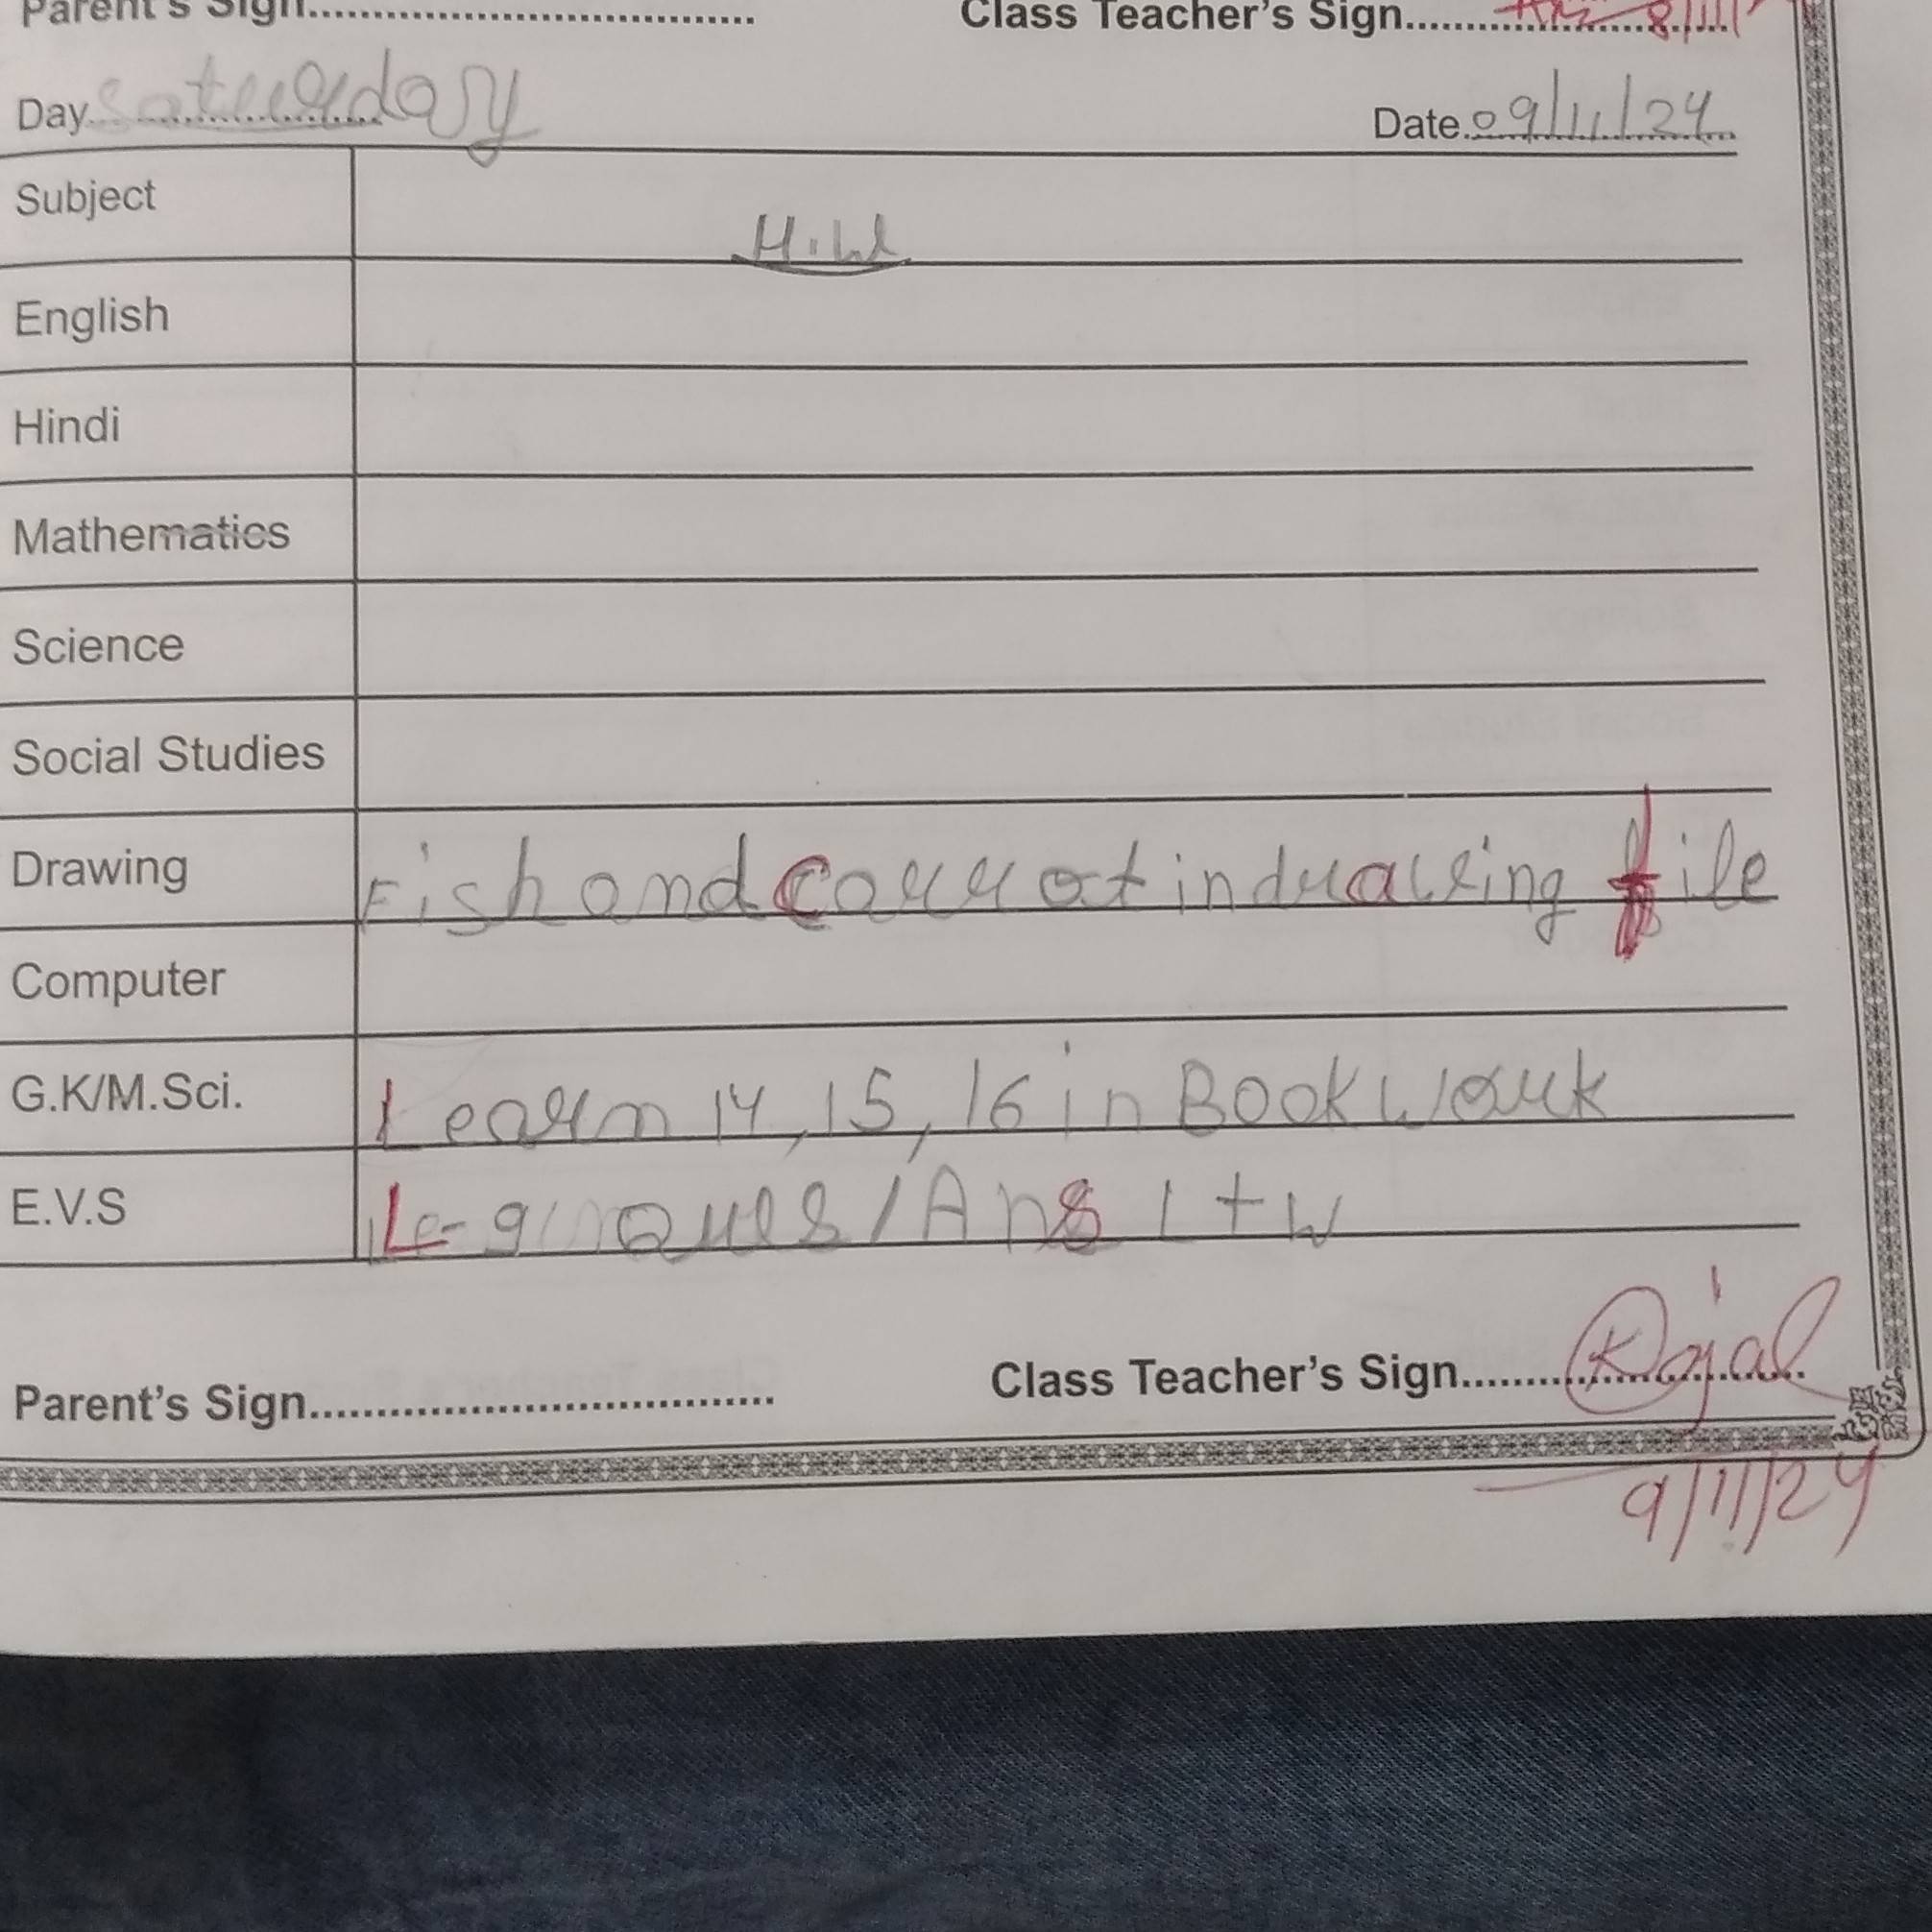 Parent's Sign............ Class Teacher's Sign............ 8/11/
Day Saturday Date 09/11/24
Subject H.W
English
Hindi
Mathematics
Science
Social Studies
Drawing Fish and Carrot in drawing file
Computer
G.K/M.Sci. Learn 14, 15, 16 in Book Work
E.V.S L-9 Ques/Ans L+W
Parent's Sign............ Class Teacher's Sign............ Kajal
9/11/24